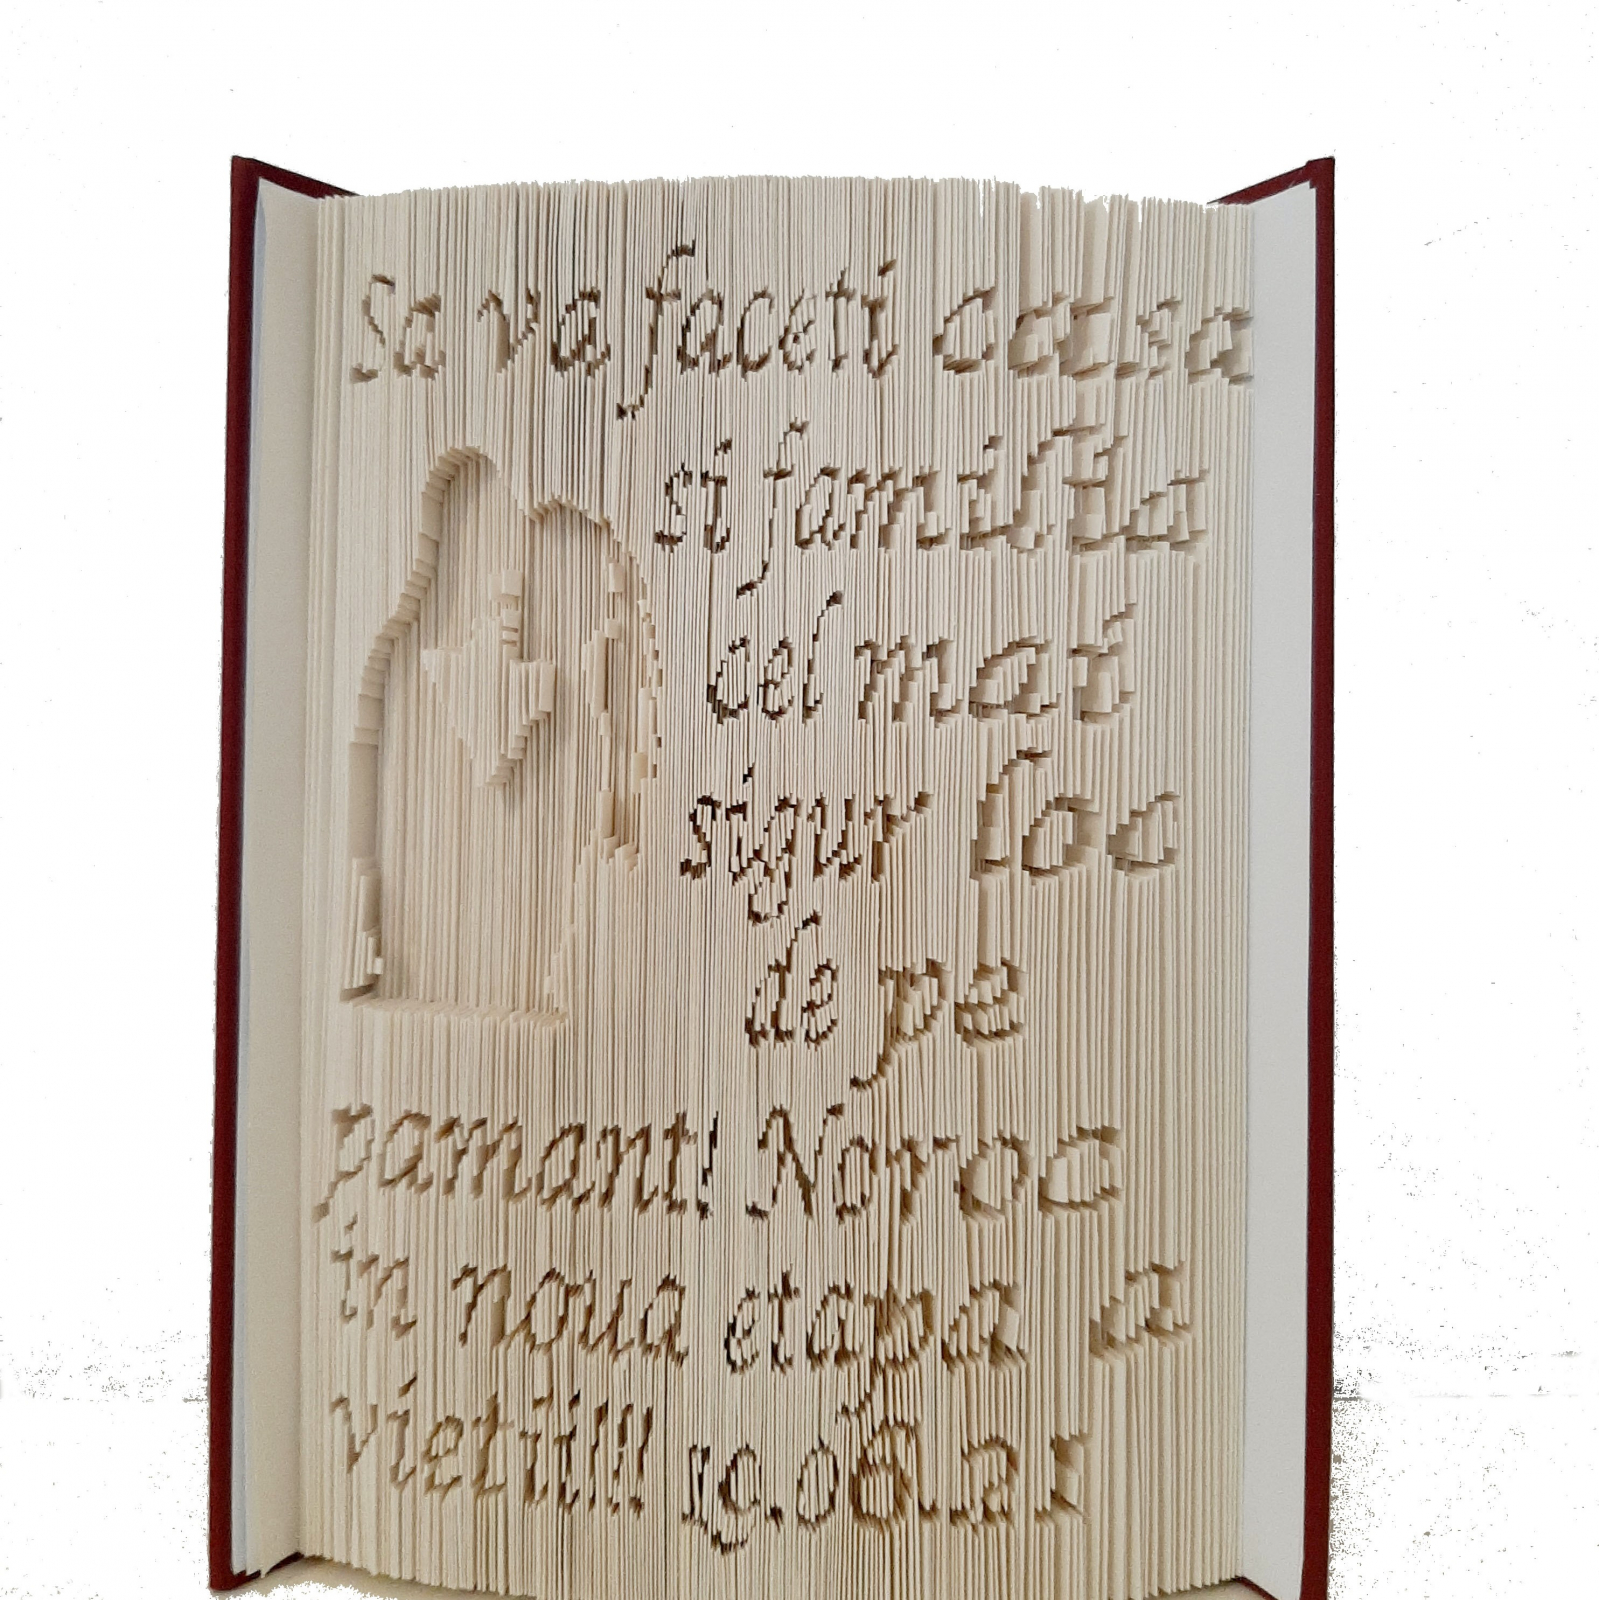 Sa va faceti casa
si familia
cel mai
sigur loc
de pe
pamant! Noroc
in noua etapa a
vietii!!! 19.06.21